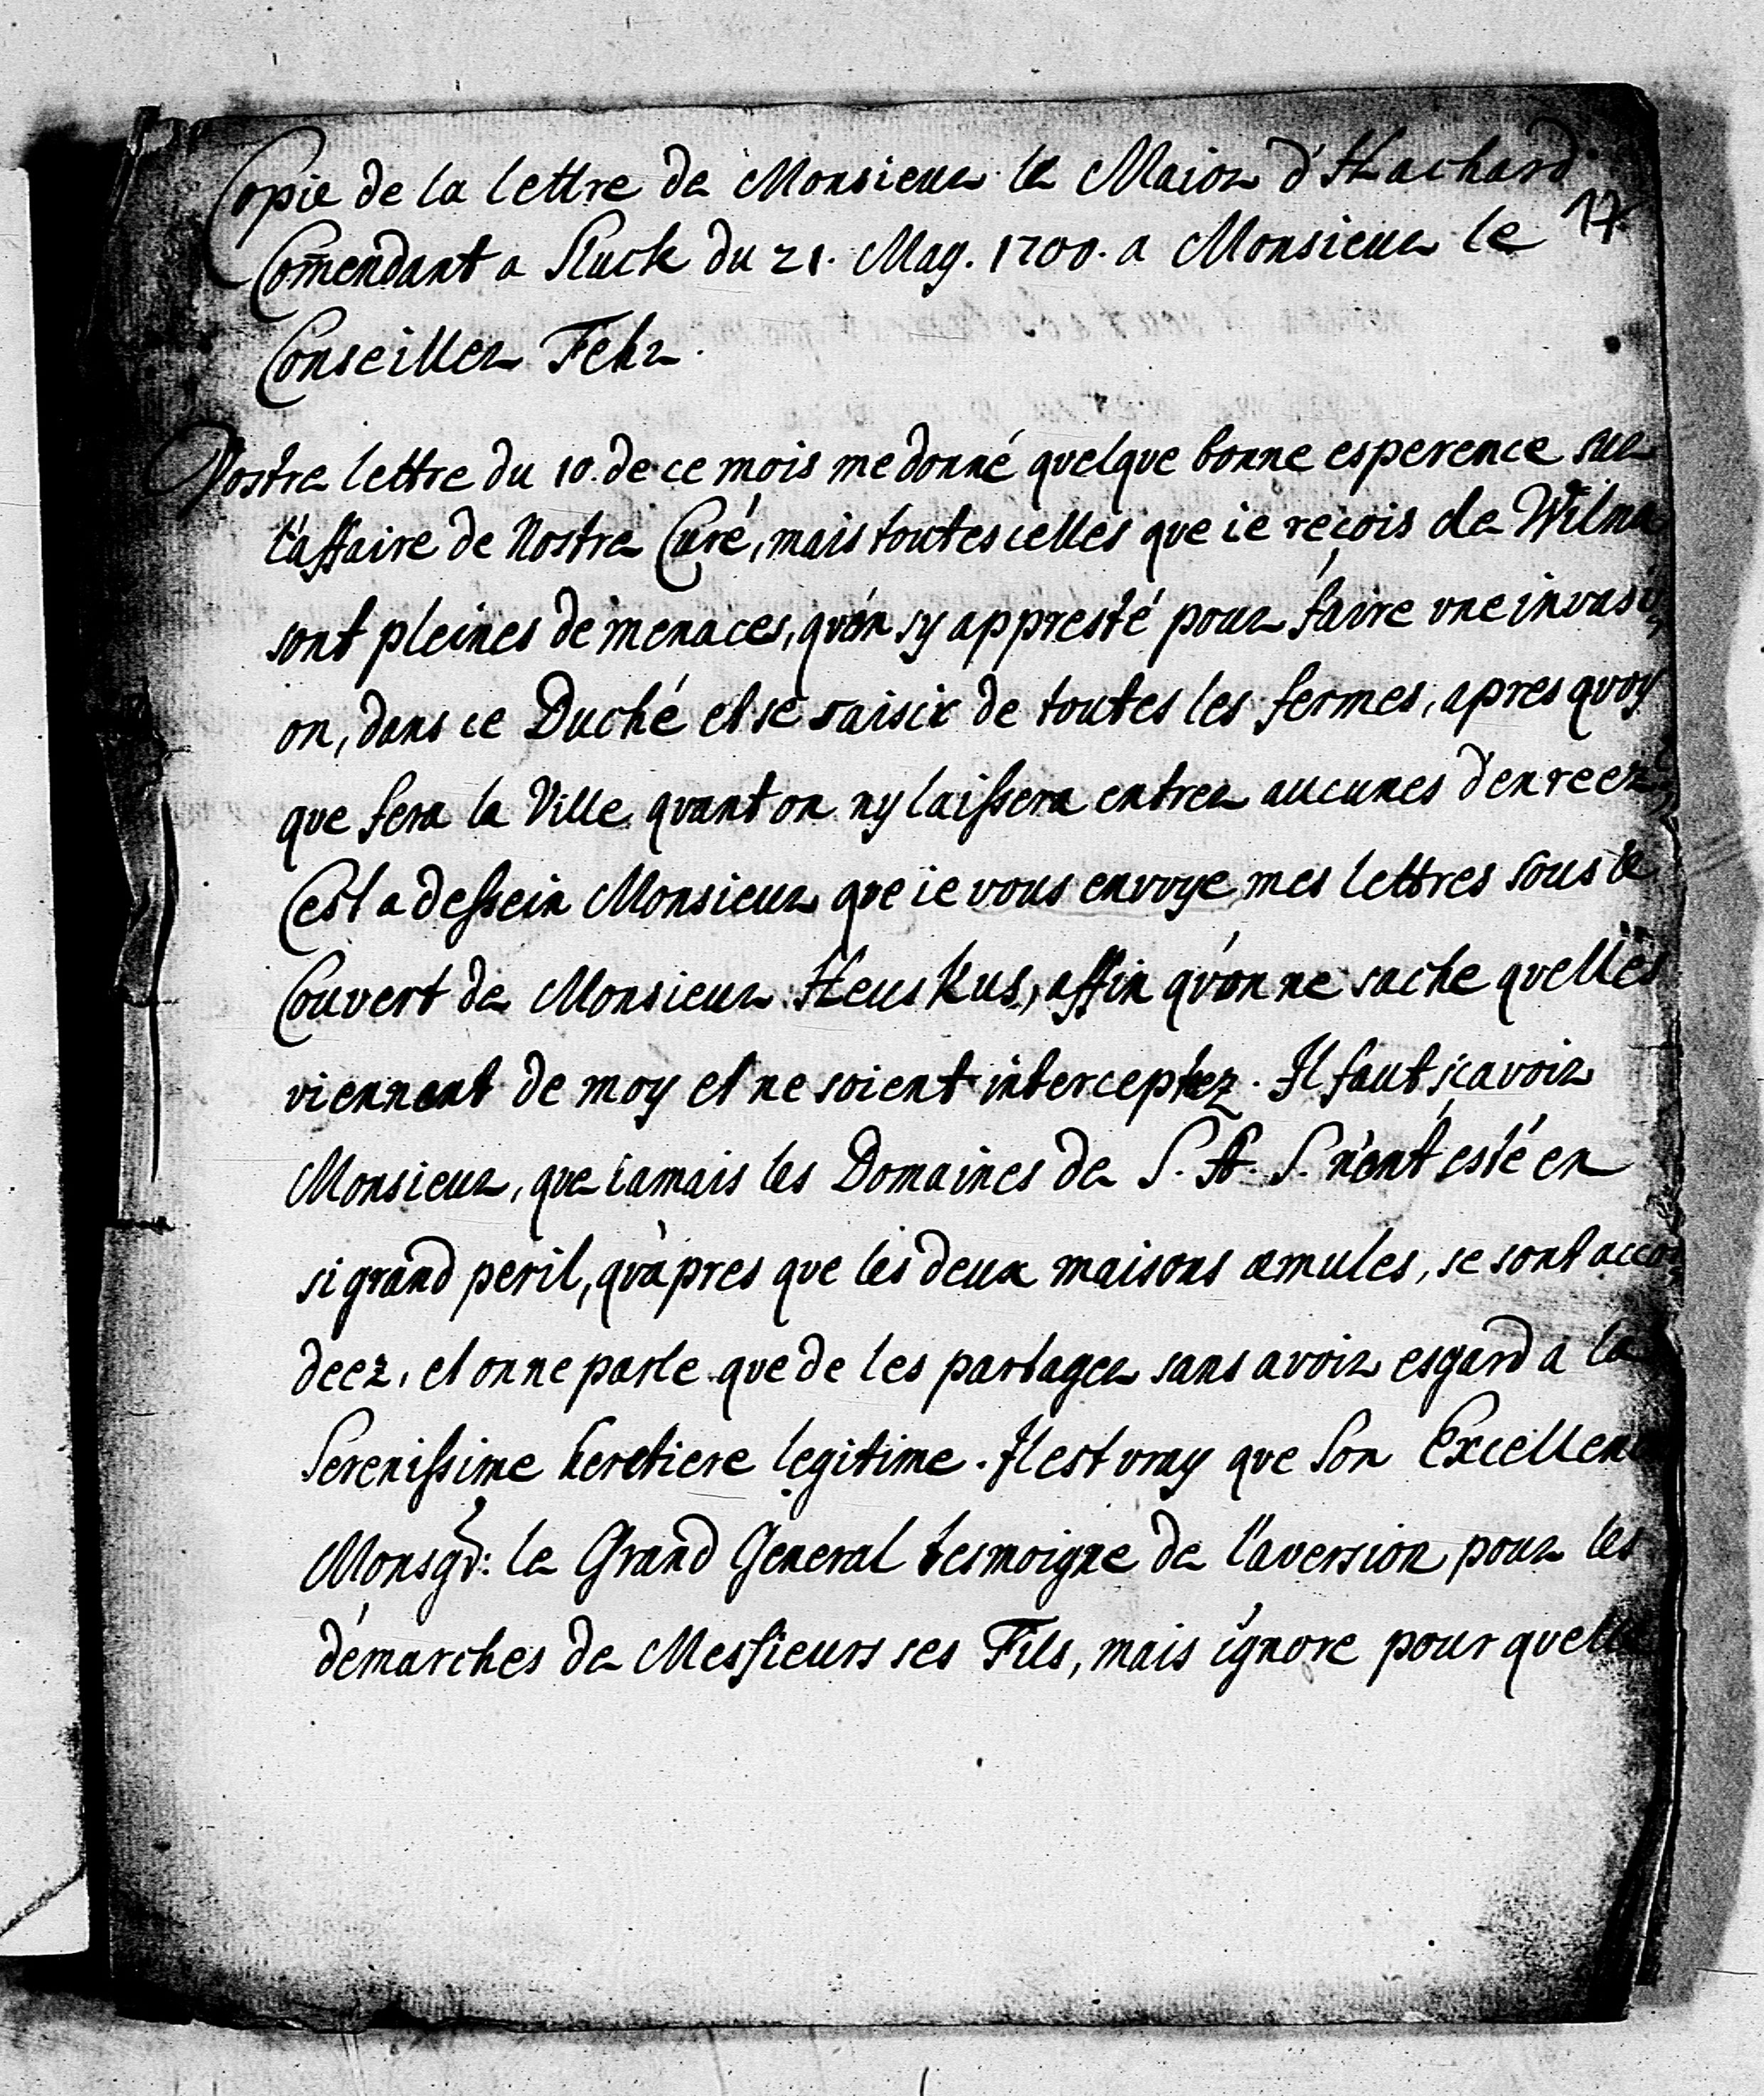 Copie de la lettre de Monsieur le Maior d'Hachard
17.
Com̄endant a Sluck du 21. May. 1700. a Monsieur le
Conseiller Fehr.
Vostre lettre du 10. de ce mois me donné quelque bonne esperence sur
l'affaire de Nostre Curé, mais toutes celles que ie reçois de Wilna
sont pleines de menaces, qu'on sy appresté pour faire vne invasi
on, dans ce Duché et se saisir de toutes les fermes, apres quoy
que fera la Ville quant on ny laissera entrer aucunes d'enreez
C'est a dessein Monsieur que ie vous envoye mes lettres sous le
Couvert de Monsieur Heuskus, affin qu'on ne sache quelles
viennent de moy et ne soient interceptez. Il faut sçavoir
Monsieur, que iamais les Domaines de S. A. S. n'ont esté en
si grand peril, qu'apres que les deux maisons æmules, se sont accor
deez, et on ne parle que de les partager sans avoir esgard a la
Serenissime heretiere legitime. Il est vray que Son Excellence
Monsgr: le Grand General tesmoigne de l'aversion pour les
démarches de Messieurs ses Fils, mais i'gnore pour quelle